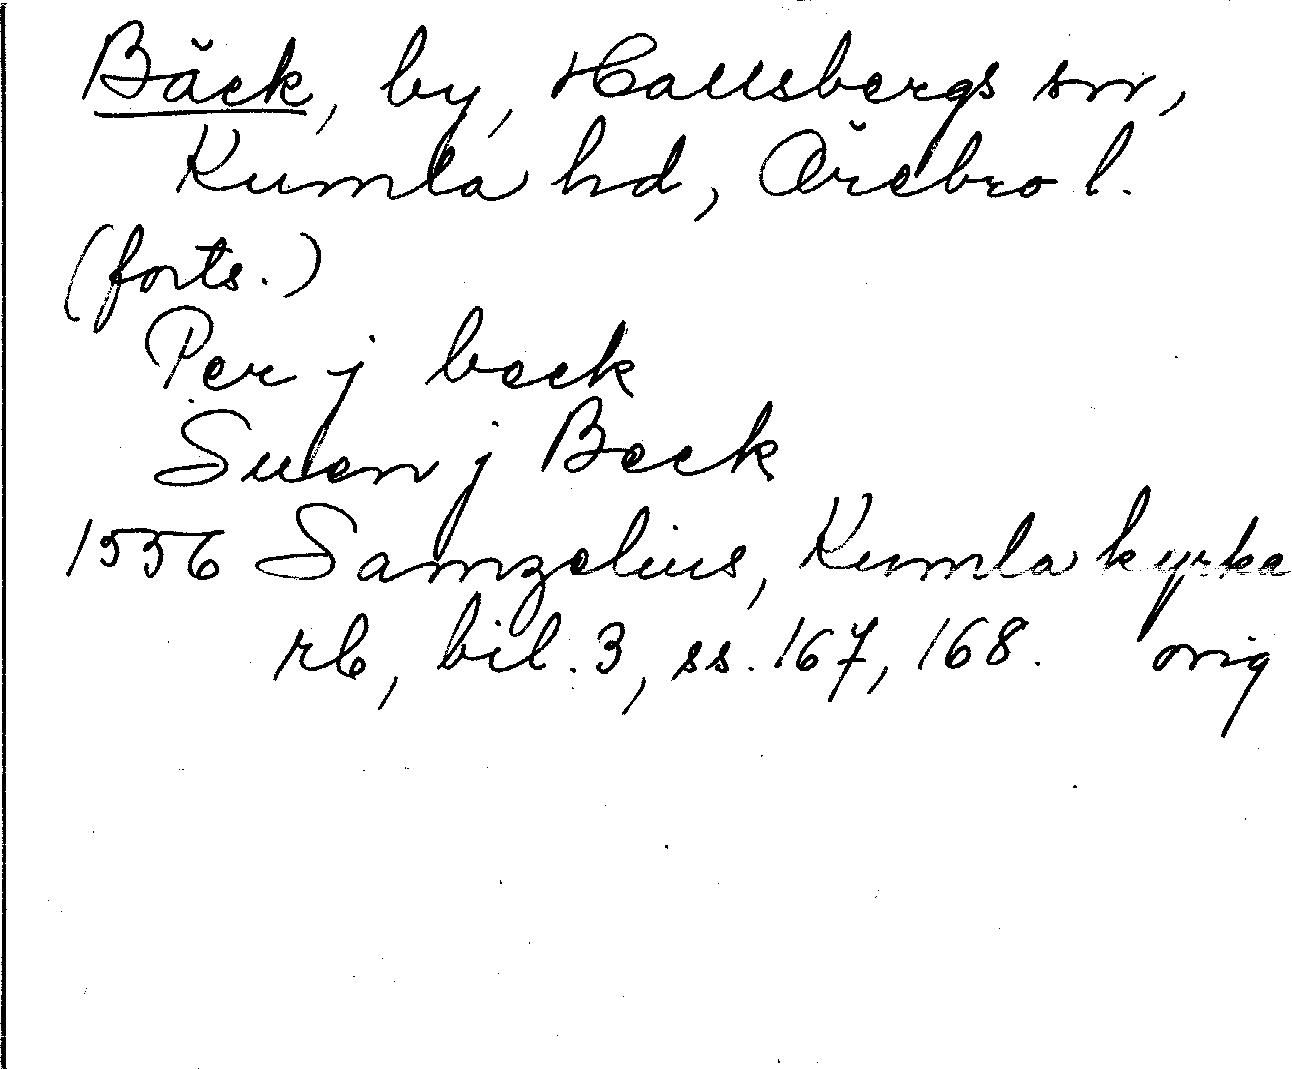 Bäck, by, Hallsbergs sn,
Kumla hd, Örebro l.
(forts.)
Per j beck
Suen j Beck
1556 Samzelius, Kumla kyrka
rb, bil. 3, ss. 167, 168. orig